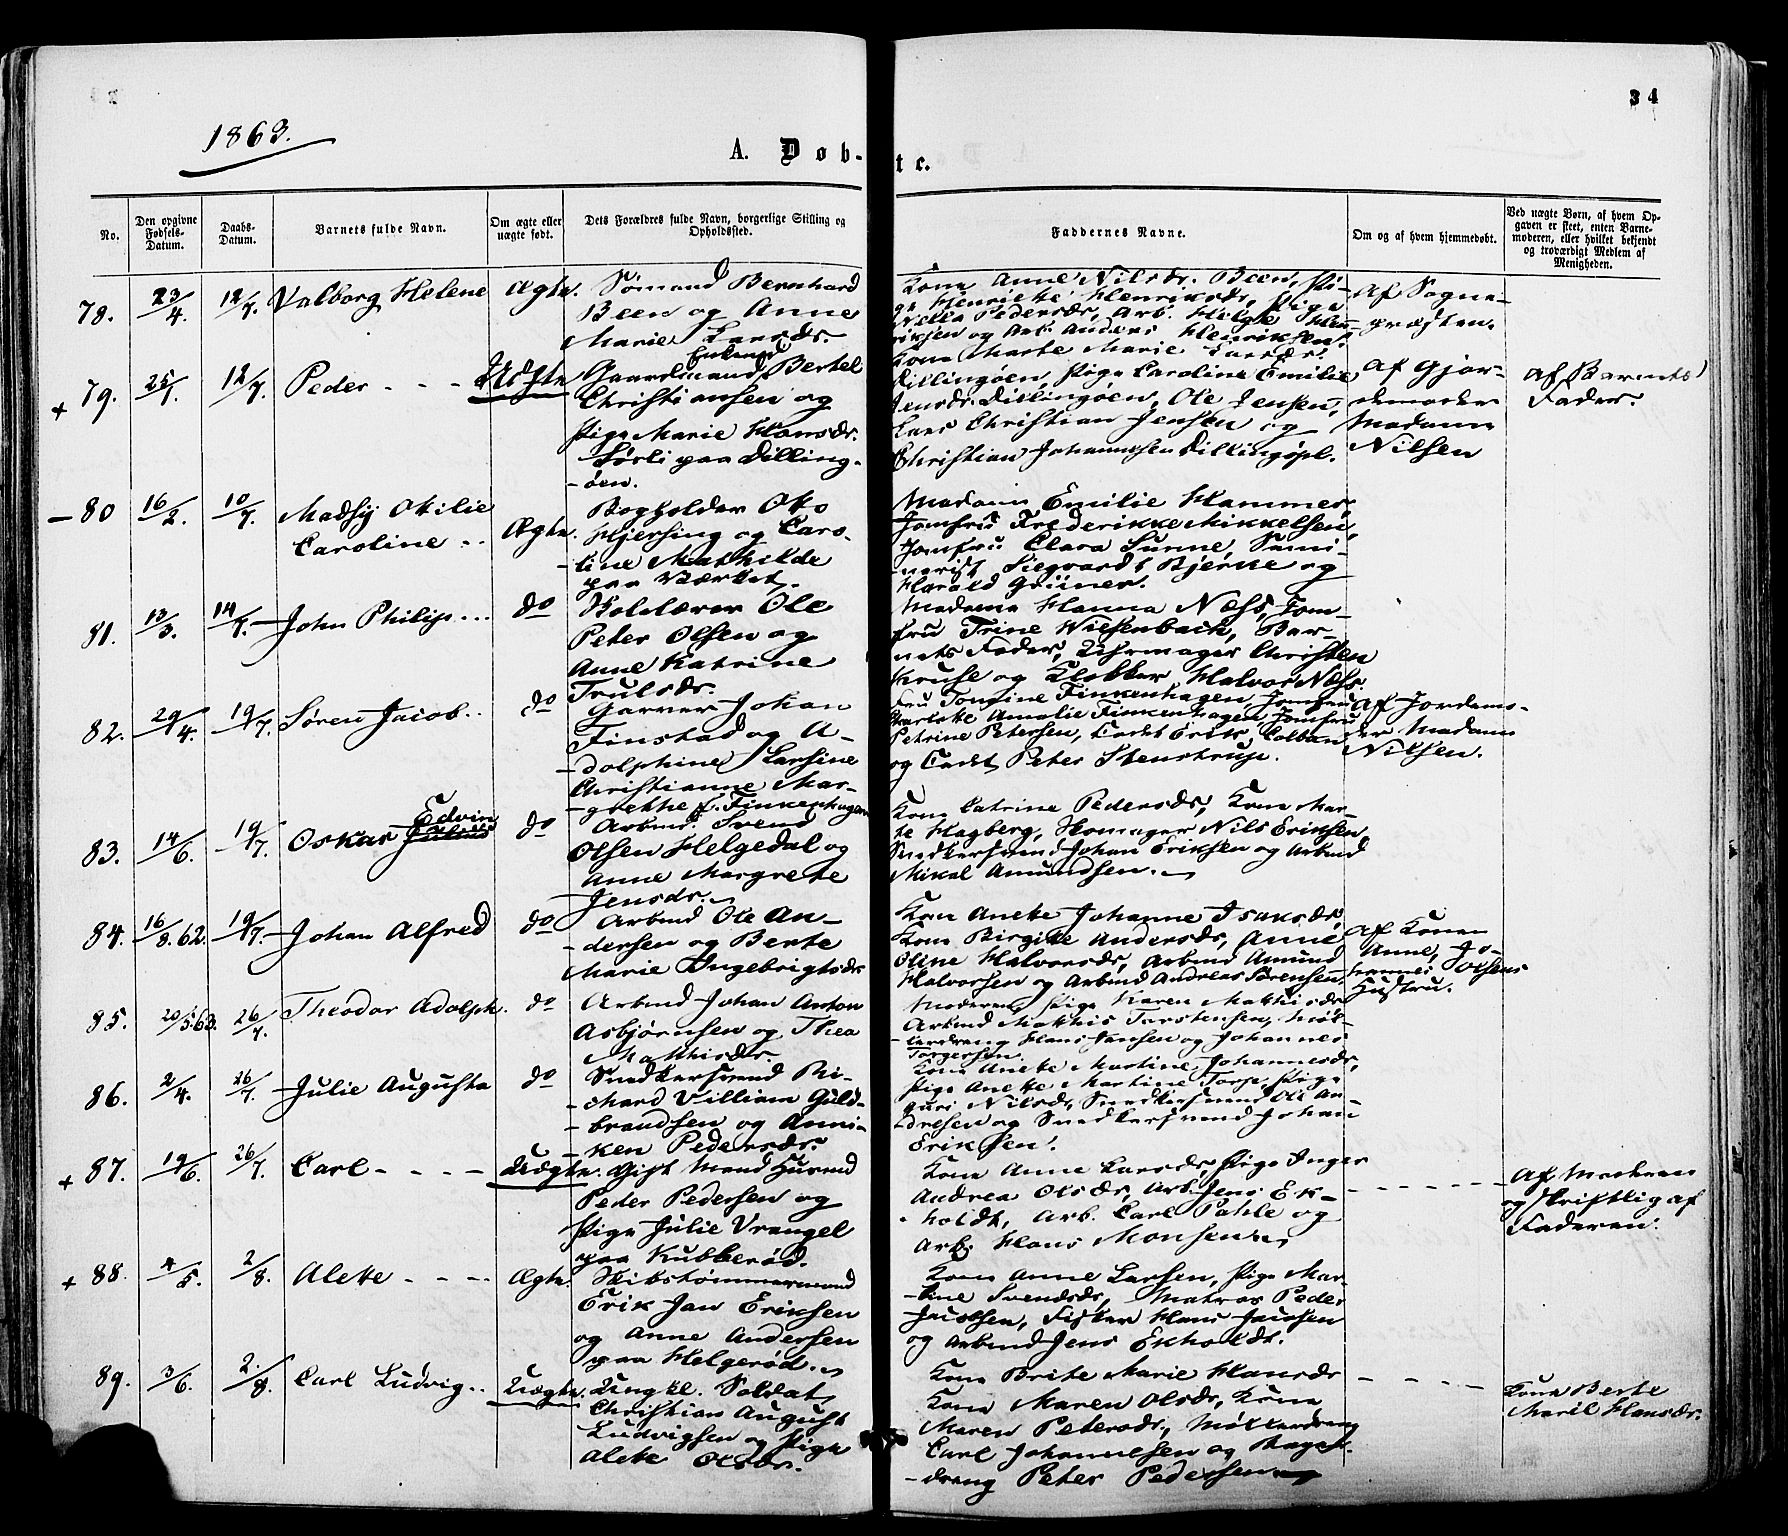 34
1863.
A. Døb-
te.
No.
Den opgivne
Fødsels-
Datum.
Daabs-
Datum.
Barnets fulde Navn.
Om ægte eller
uægte født.
Dets Forældres fulde Navn, borgerlige Stilling og
Opholdssted.
Faddernes Navne.
Om og af hvem hjemmedøbt.
Ved uægte Børn, af hvem Op-
gaven er skeet, enten Barne-
moderen, eller hvilket bekjendt
og troværdigt Medlem af
Menigheden.
78. 23/4. 12/7. Valborg Helene Ægte. Sømand Bernhard
Been og Anne
Marie Larsdr.
Kone Anne Nilsdr. Been, Pi-
ge Henriette Henriksdr, Pige
Pedersdr, Arb. Helge Hen-
riksen og Arb. Anders Henriksen.
Af Sogne-
præsten.
+ 79. 25/1. 12/7. Peder - - - Uægte Gaardmand Enkemd Bertel
Christiansen og
Pige Marie Hansdr.
Sørli paa Dilling-
-øen.
Kone Marte Marie Larsdr.
Dillingøen, Pige Caroline Emilie
Jensdr. Dillingøen, Ole Jensen,
Lars Christian Jensen og
Christian Johannesen Dillingøpl.
Af Gjor-
demoder
Madam
Nilsen
Af Barnets
Fader.
- 80 16/2. 10/7. Otilie
Caroline .. Ægte. Bogholder Otto
Hjersing og Caro-
line Mathilde
paa Værket.
Madam Emilie Hammer,
Jomfru Frederikke Mikkelsen,
Jomfru Clara Sunne, Semi-
narist Siegvardt Bjerke og
Harald Grüner.
81. 13/3. 14/7. John Philip... do Ole
Peter Olsen og
Anne Katrine
Trulsdr.
Madame Hanna Næss, Jom-
fru Trine Wiesenbach, Bar-
nets Fader, Uhrmager Christen
Kruse og Klokker Halvor Næss.
82. 29/4. 19/7. Søren Jacob.. do Garver Johan
Finstad og A-
-dolphine Larsine
Christianne Mar-
-grethe f. Finkenhagen
Fru Finkenhagen, Jomfru
Amalie Finkenhagen, Jomfru
Petrine Petersen, Cadet Colban
og Cadet Peter Stenstrup.
Af Jordemo-
der Madam
Nilsen.
83. 14/6. 19/7. Oskar Julius Edvin do Arbmd. Svend
Olsen Helgedal og
Anne Margrete
Jensdr.
Kone Catrine Pedersdr, Kone Mar-
te Hagberg, Skomager Nils Eriksen,
Snedkersvend Johan Eriksen og Arbmd
Mikal Amundsen.
84. 16/8.62. 19/7. Johan Alfred do Arbmd Ole An-
-dersen og Berte
Marie Ingebrigtsdr
Kone Anette Johanne Isaksdr,
Kone Birgitte Andersdr, Anne
Oline Halvorsdr, Arbmd Amund
Halvorsen og Arbmd Andreas Sørensen.
Af Konen
Anne, Jo-
hannes Olsens
Hustru.
85. 20/5.63. 26/7. Theodor Adolph. do Arbmd Johan Anton
Asbjørnsen og Thea
Matthisdr.
Moderen, Pige Karen Matthisdr
Arbmd Matthis Torstensen, Møl-
lerdreng Hans Hansen og Johannes
Torgersen.
86. 2/4. 26/7. Julie Augusta do Snedkersvend Ri-
-chard Villiam Guld-
-brandsen og Anni-
-ken Pedersdr.
Kone Anette Martine Johannesdr,
Pige Anette Martine Torp, Pige
Guri Nilsdr, Snedkersvend Ole An-
-dresen og Snedkersvend Johan
Eriksen.
+ 87. 19/6. 26/7. Carl - - - - Uægte. Gift Mand
Peder Pedersen og
Pige Julie Vrangel
paa Kubberød.
Kone Anne Larsdr, Pige Inger
Andrea Olsdr, Arb. Jens Ek-
holdt, Arb. Carl Pahle og
Arb. Hans Monsen.
Af Moderen
og skriftlig af
Faderen.
+ 88. 4/5. 2/8. Alette - - - Ægte. Skibstømmermand
Erik Jan Eriksen
og Anne Andersen
paa Helgerød.
Kone Anne Larsen, Pige Mar-
-tine Svendsdr, Matros Peder
Jacobsen, Fisker Hans Jacobsen
og Arbmd Jens Ekholdt.
89. 3/6. 2/8. Carl Ludvig.. Uægte. Ungkl. Soldat
Christian August
Ludvigsen og Pige
Alette Olsdr.
Kone Brite Marie Hansdr
Kone Maren Olsdr, Kone
Maren Petersdr, Møllerdreng
Carl Johannesen og Bager-
-dreng Peter Pedersen
Kone Berte
Marie Hansdr.